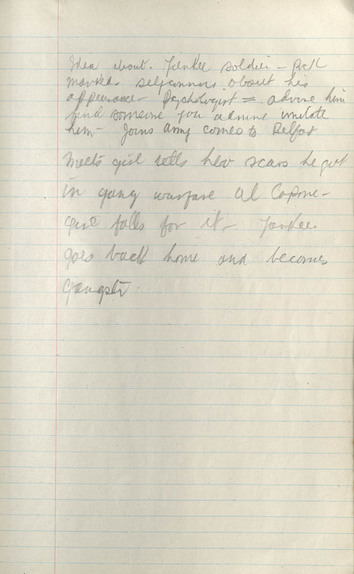 Idea about Yankee soldier - Pock
marked selfconscious about his
appearance - Psychologist = advise him
find someone you admire imitate
him - Joins army comes to Belfast
meets girl tells her scars he got
in gang warfare Al Capone -
girl falls for it - Yankee
goes back home and becomes
gangster